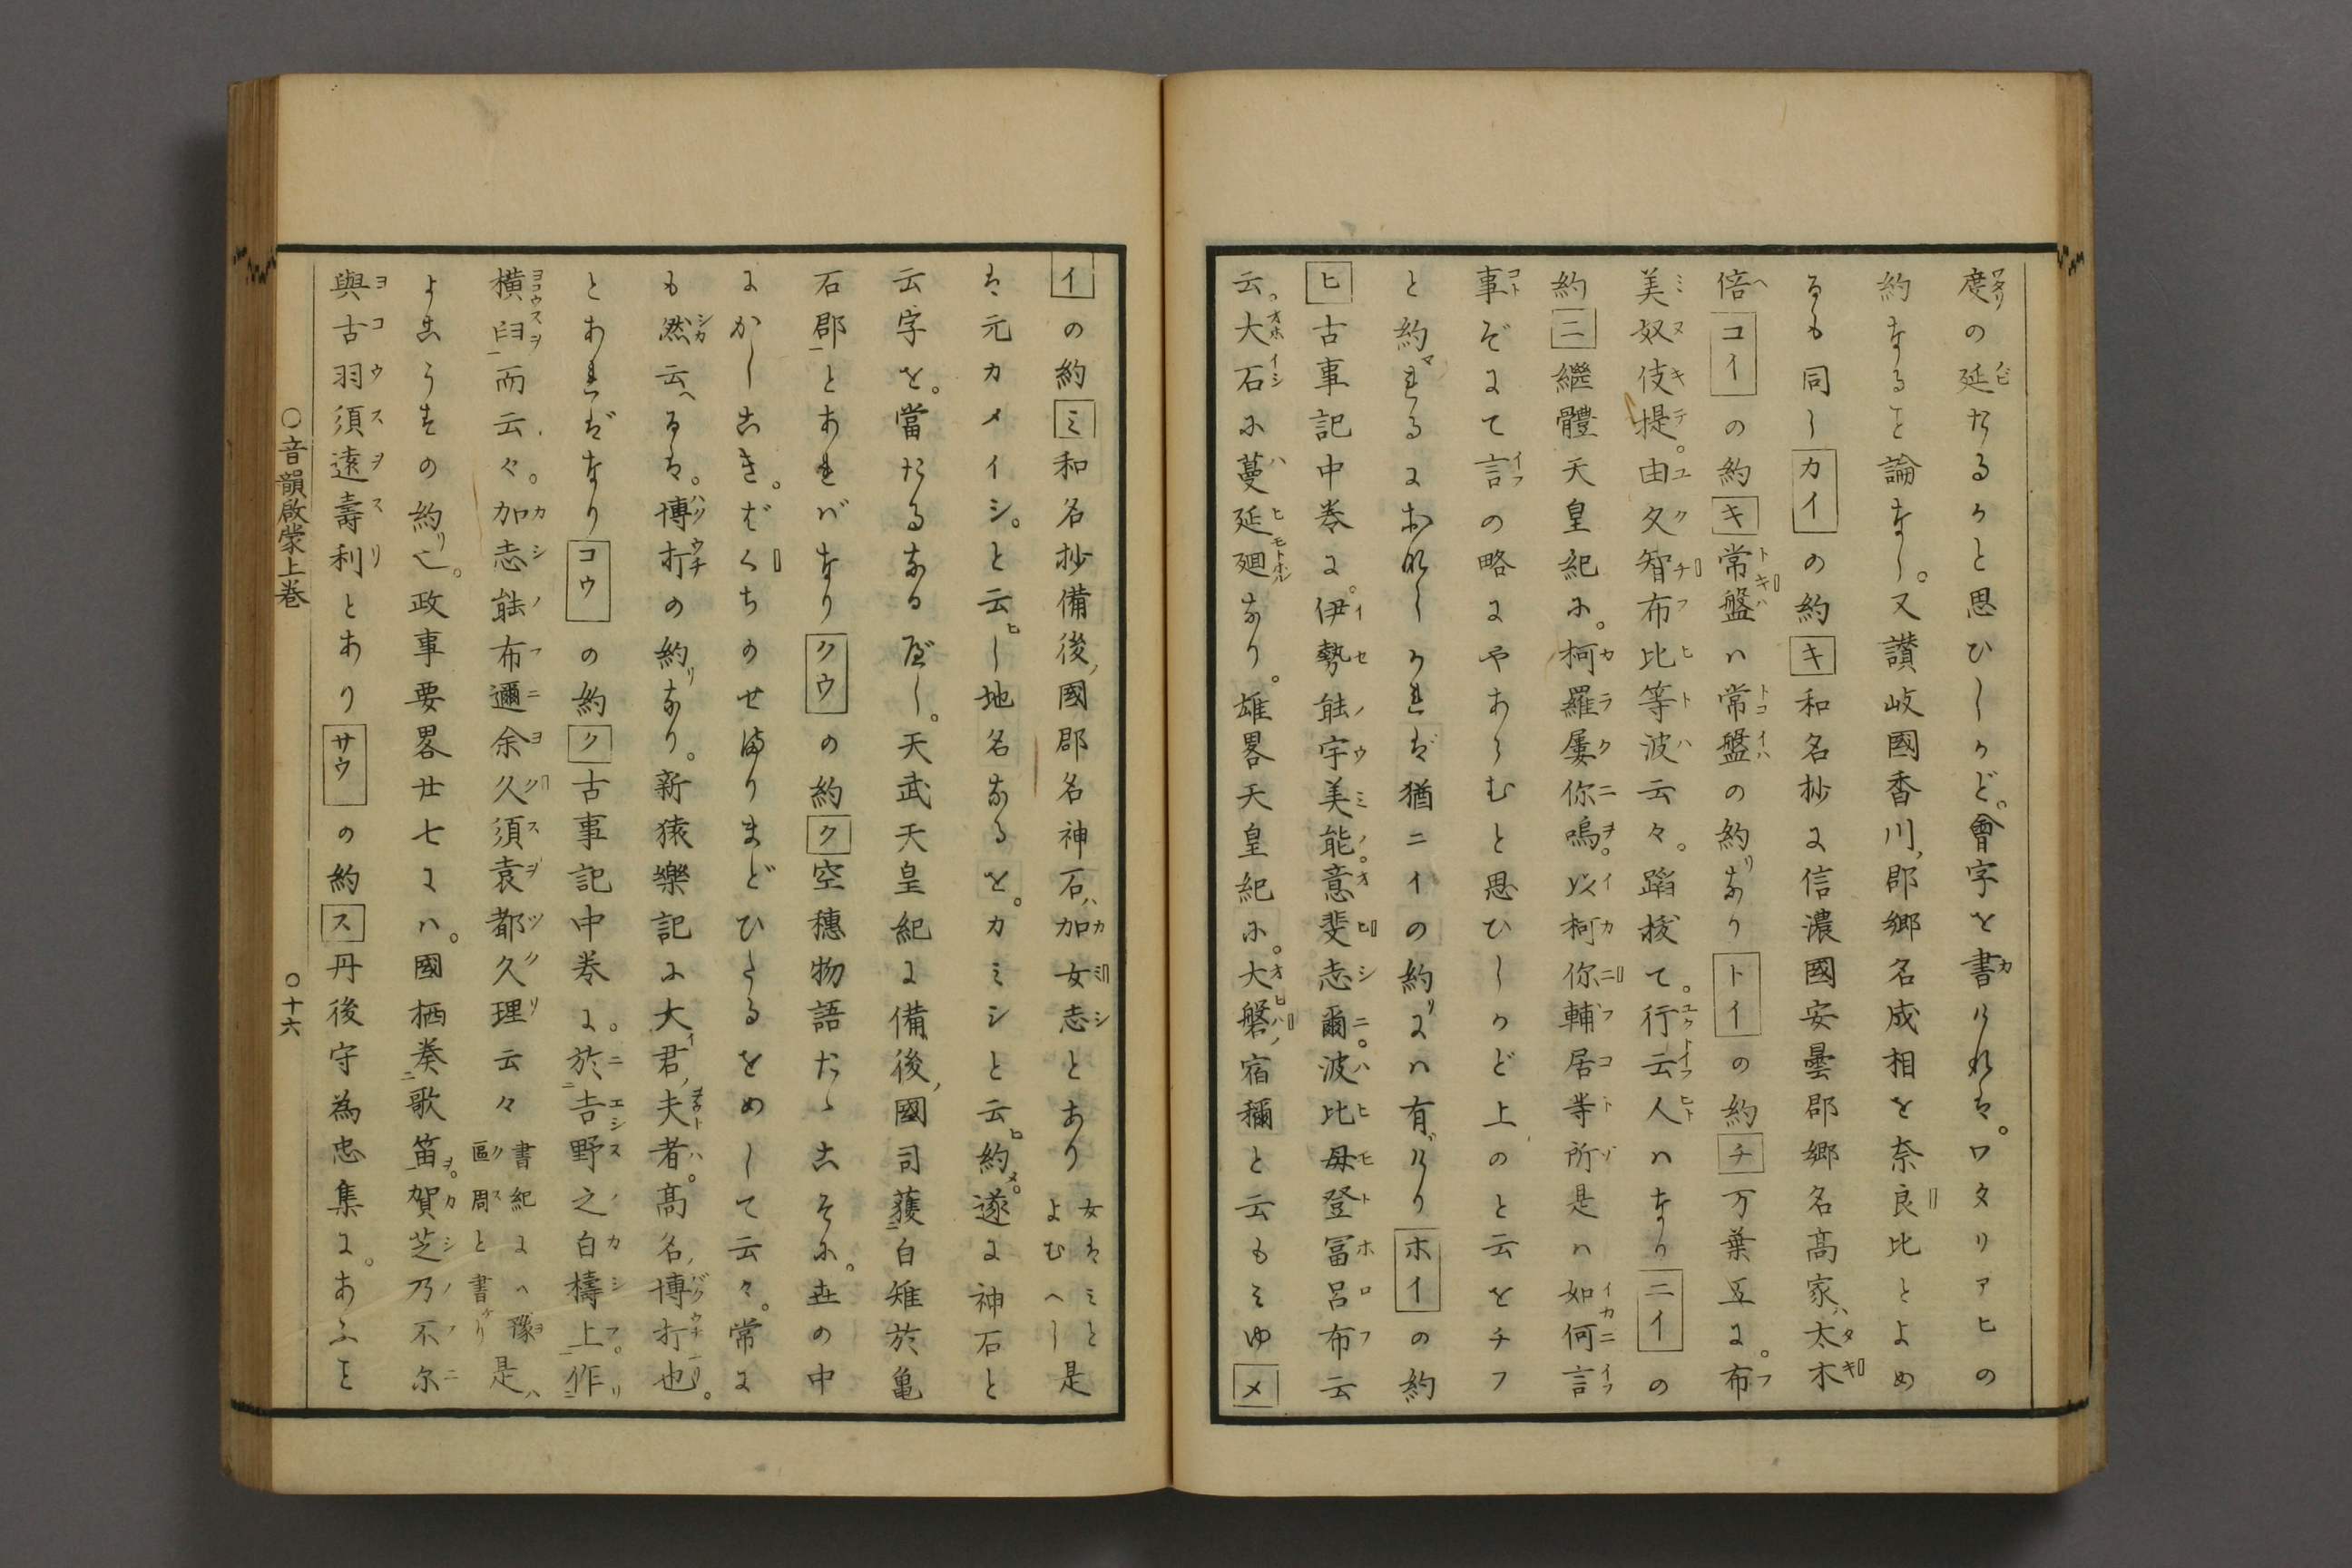 度の延たるかと思ひしかど。會字を書けれは。ワタリアヒの
約なること論なし。又讃岐國香川郡郷名成相を奈良比とよめ
るも同しカイの約キ和名抄に信濃國安曇郡郷名髙家ハ太木
倍コイの約キ常盤ハ常盤の約なりトイの約チ万葉五に。布
美奴伎提。由久智布比等波云々。蹈抜て。行云人ハなりニイの
約ニ繼體天皇紀に。柯羅屢你嗚。以柯你輔居等所是ハ如何言
事ぞにて言の略にやあらむと思ひしかど上のと云をチフ
と約まれるにおなしかれば猶ニイの約にハ有けりホイの約
ヒ古事記中巻に。伊勢能宇美能。意斐志爾。波比母登冨呂布云
云。大石に蔓延廻なり。雄畧天皇紀に。大磐宿禰と云もみゆメ
イの約ミ和名抄備後國郡名神石ハ加女志とあり女はミとよむへし是
は元カメイシ。と云し地名なるを。カミシと云約。遂に神石と
云字を。當たるなるべし。天武天皇紀に備後國司獲白雉於亀
石郡とあればなりクウの約ク空穗物語たゝこそに。世の中
にかしこき。ばくちのせまりまどひたるをめして云々。常に
も然云るは。博打の約なり。新猿樂記に大君夫者。髙名博打也。
とあればなりコウの約ク古事記中巻に。於吉野之白檮上作
横臼而云々。加志能布邇余久須袁都久理云々書紀にハ豫區周と書り是ハ
よこうすの約也。政事要畧廿七にハ。國栖奏歌笛。賀芝乃不尓
與古羽須遠壽利とありサウの約ス丹後守為忠集に。あふこ
○音韻啟蒙上巻
○十六